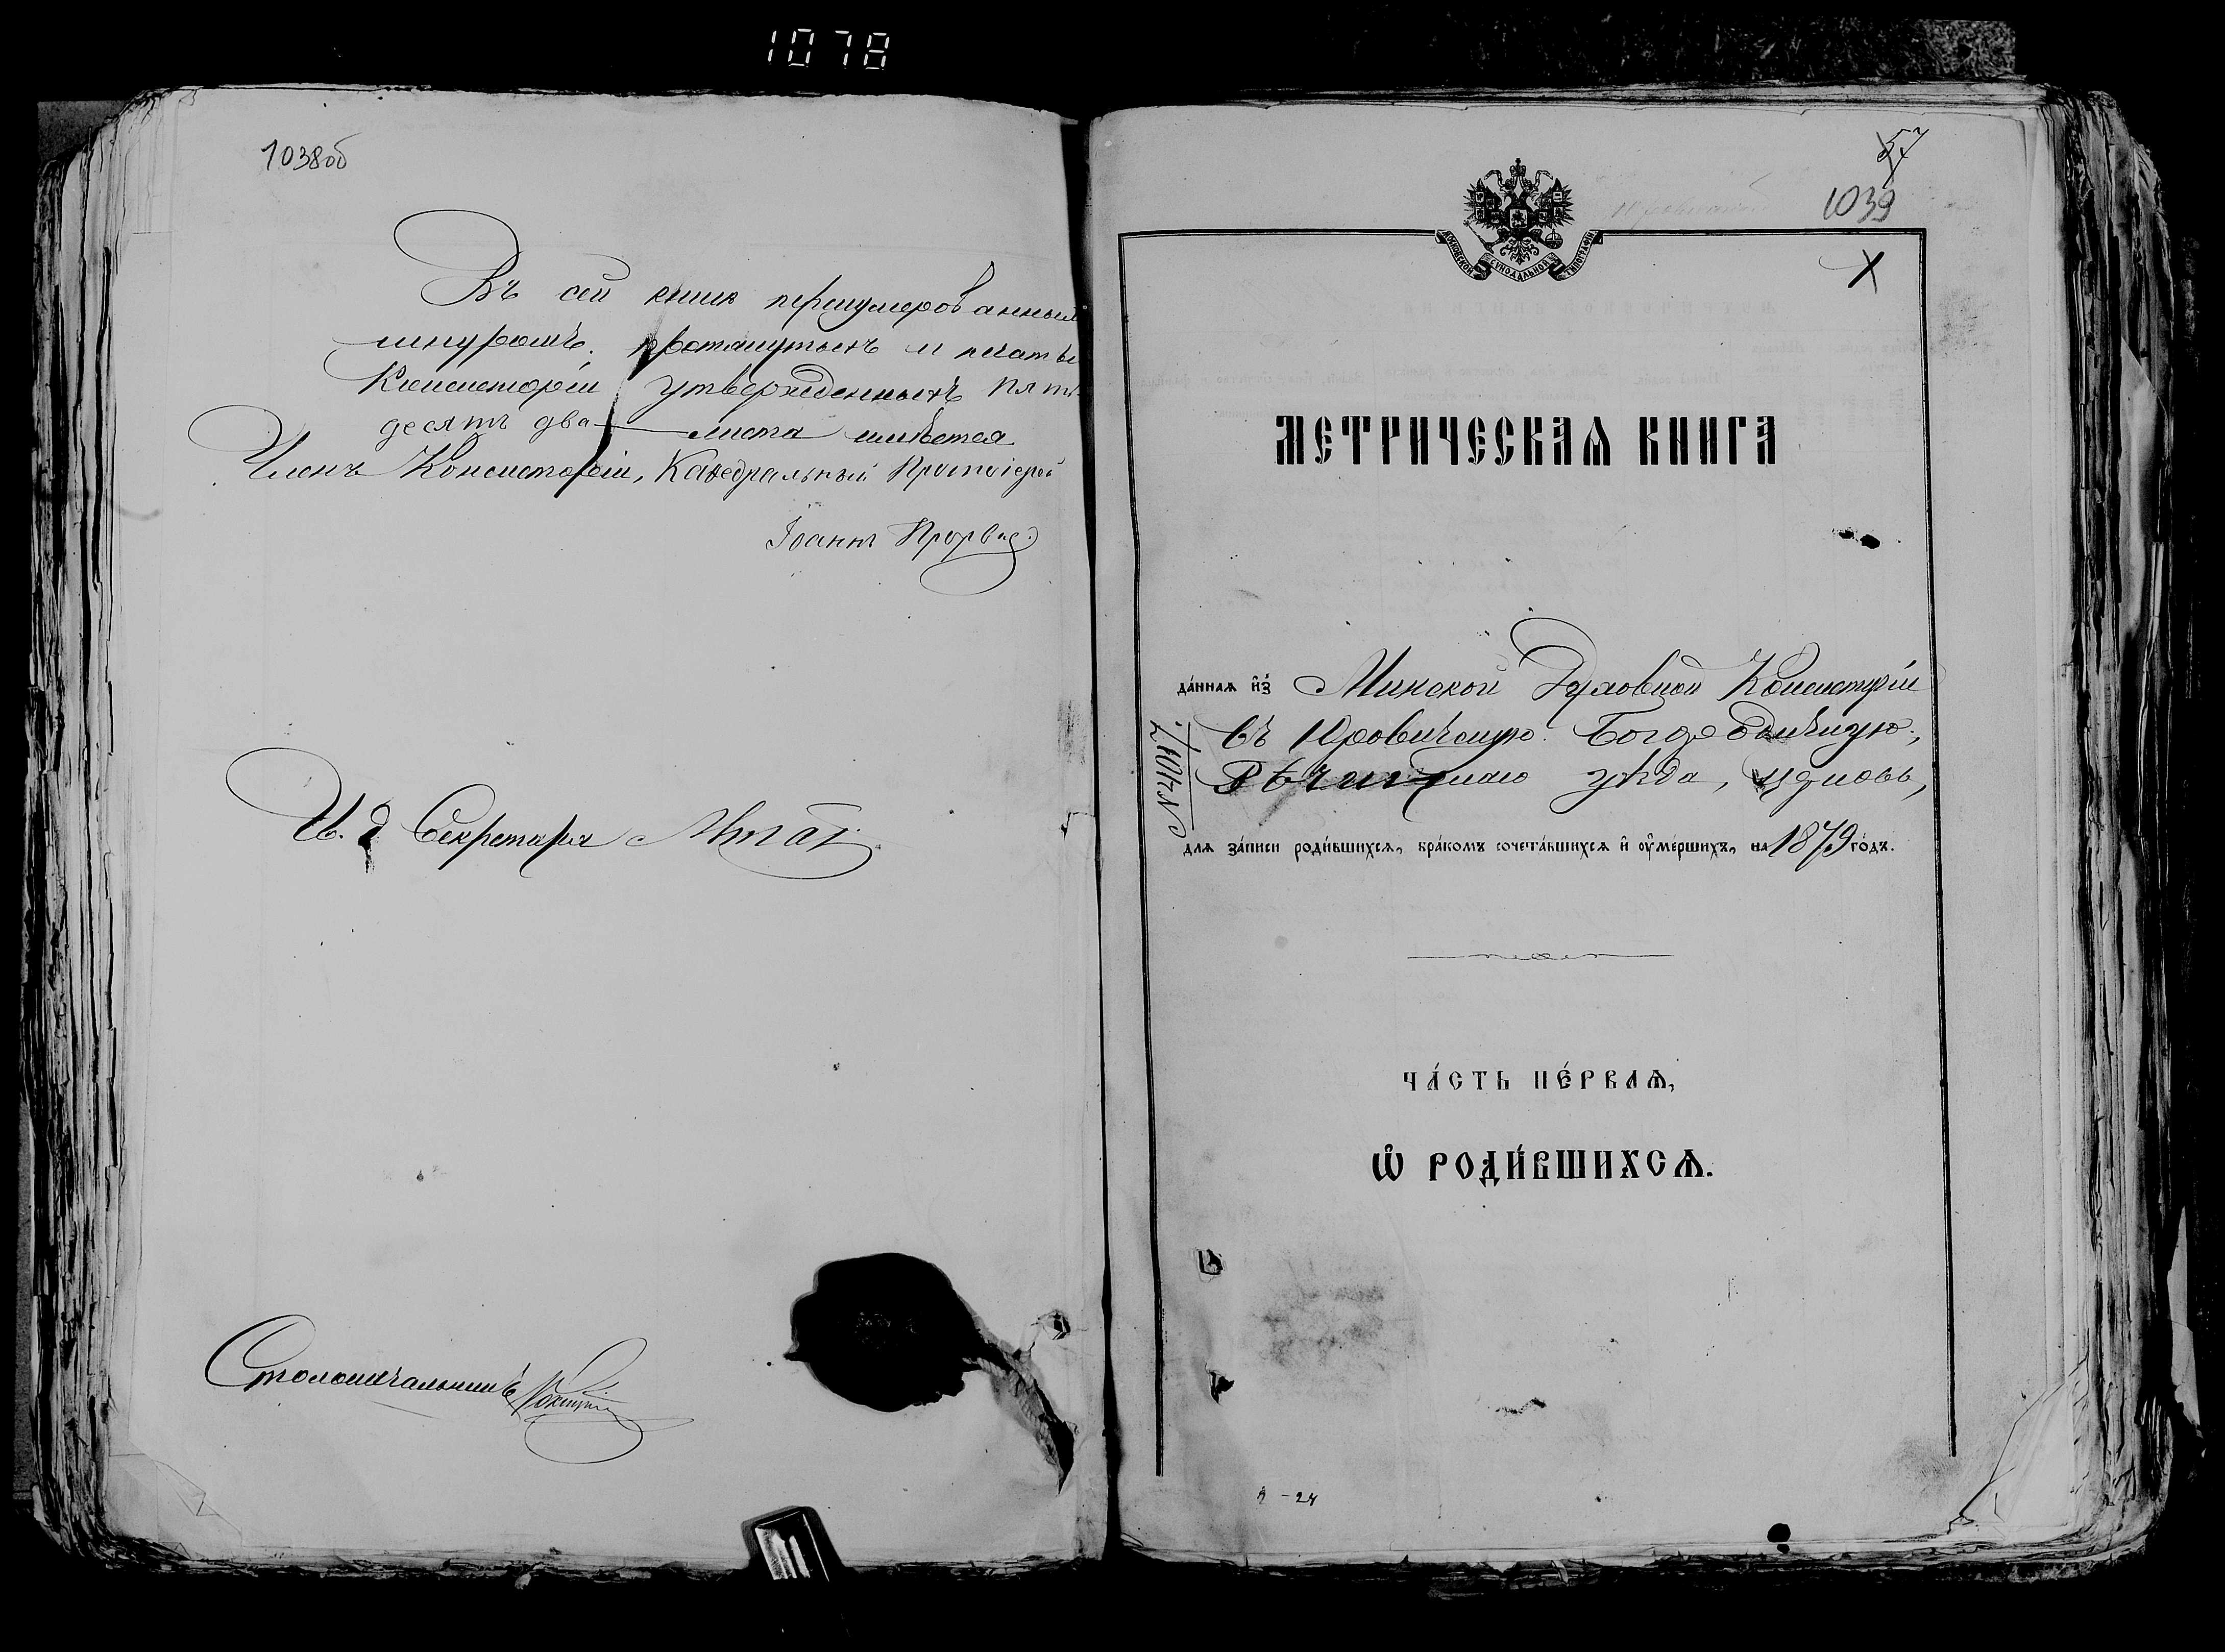 1078
1038об
Въ сей книге перенумерованныхъ
шнуромъ протянутыхъ и печатью
Консисторіи утвержденныхъ пять
десятъ два листа имѣется
Членъ Консисторіи, Каѳедральный Протоіерей
Іоаннъ
И. д Секретаря
Столоначальникъ
57
1039
МОСКОВСКОЙ СѴНОДАЛЬНОЙ ТИПОГРАФІИ
X
МЕТРИЧЕСКАѦ КНИГА
да́ннаѧ и҆з̾ Минской Духовной Консисторіи
въ Юровичскую Богородичную,
Рѣчицкаго уѣзда, церковь,
длѧ за́писи роди́вшихсѧ, бра́комъ сочета́вшихсѧ и҆ ᲂу҆ме́ршихъ, на 1879 го́дъ.
ЧА́СТЬ ПЕ́РВАѦ,
Ѡ҆ РОДИ́ВШИХСѦ.
А - 24